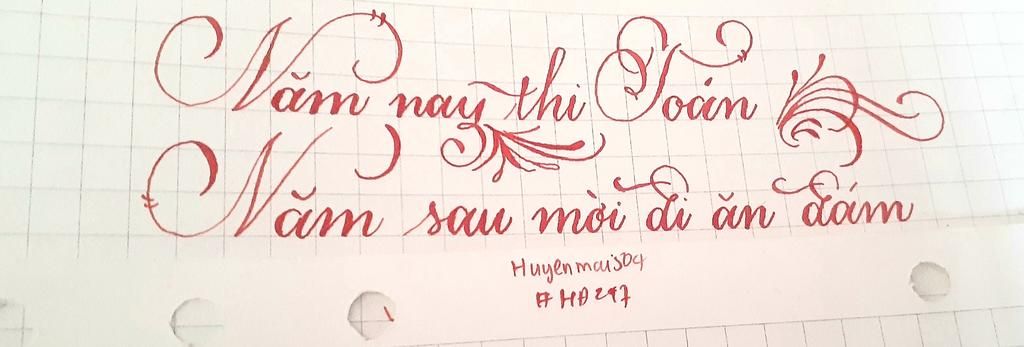 Năm nay thi Toán
Năm sau mời đi ăn đám
Huyenmais04
#HD247